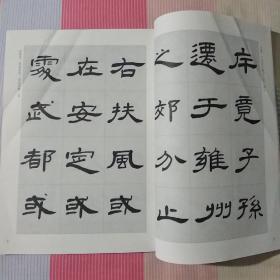 岸竟子孫
遷于雍州
之郊分止
右扶風或
在安定或
處武都或